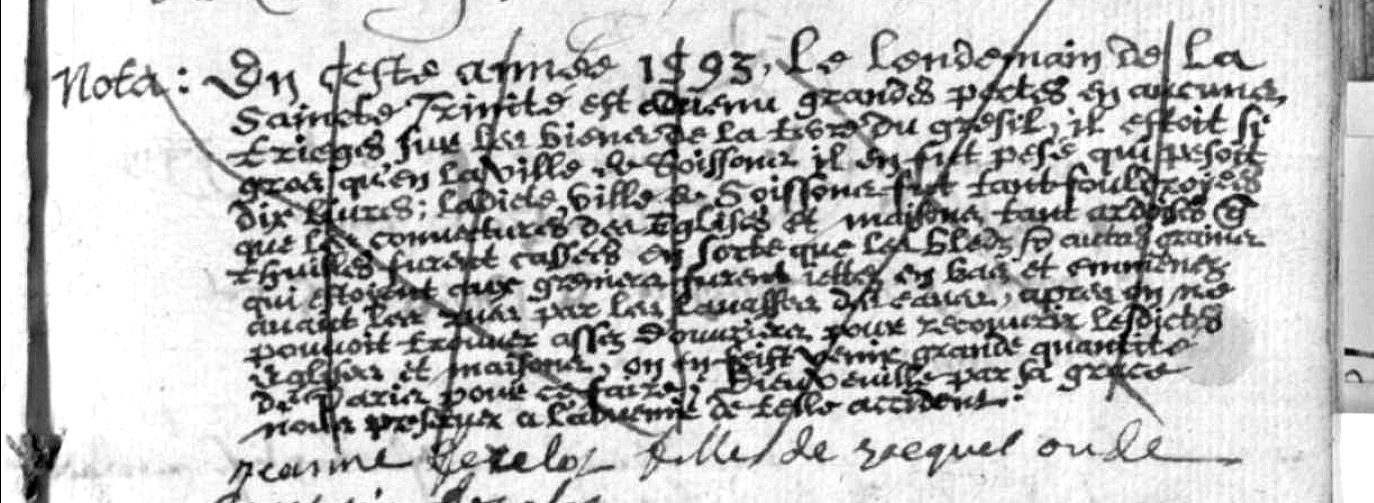 Nota: En ceste année 1593, le lendemain de la
Saincte Trinité est advenu grandes pertes en aucunes
trieges sur les biens de la terre du gresil, il estoit si
gros qu'en la ville de Soissons il en fut pesé qui pesoit
dix livres; ladicte ville de Soissons fut tant fouldroyées
que les couvertures des Eglises et maisons tant ardoises &
thuilles furent cassées en sorte que les bledz & autres grains
qui estoient aux greniers furent iettez en bas et emmenez
avant les rues par les lavasses des eaues, apres on ne
pouvoit trouver assez d'ouvriers pour recouvrir lesdictes
Eglises et maisons, on en feist venir grande quantité
de Paris pour ce faire; Dieu veuille par sa grace
nous preserver à l'advenir de telle accident.
Jeanne fille de Jacques